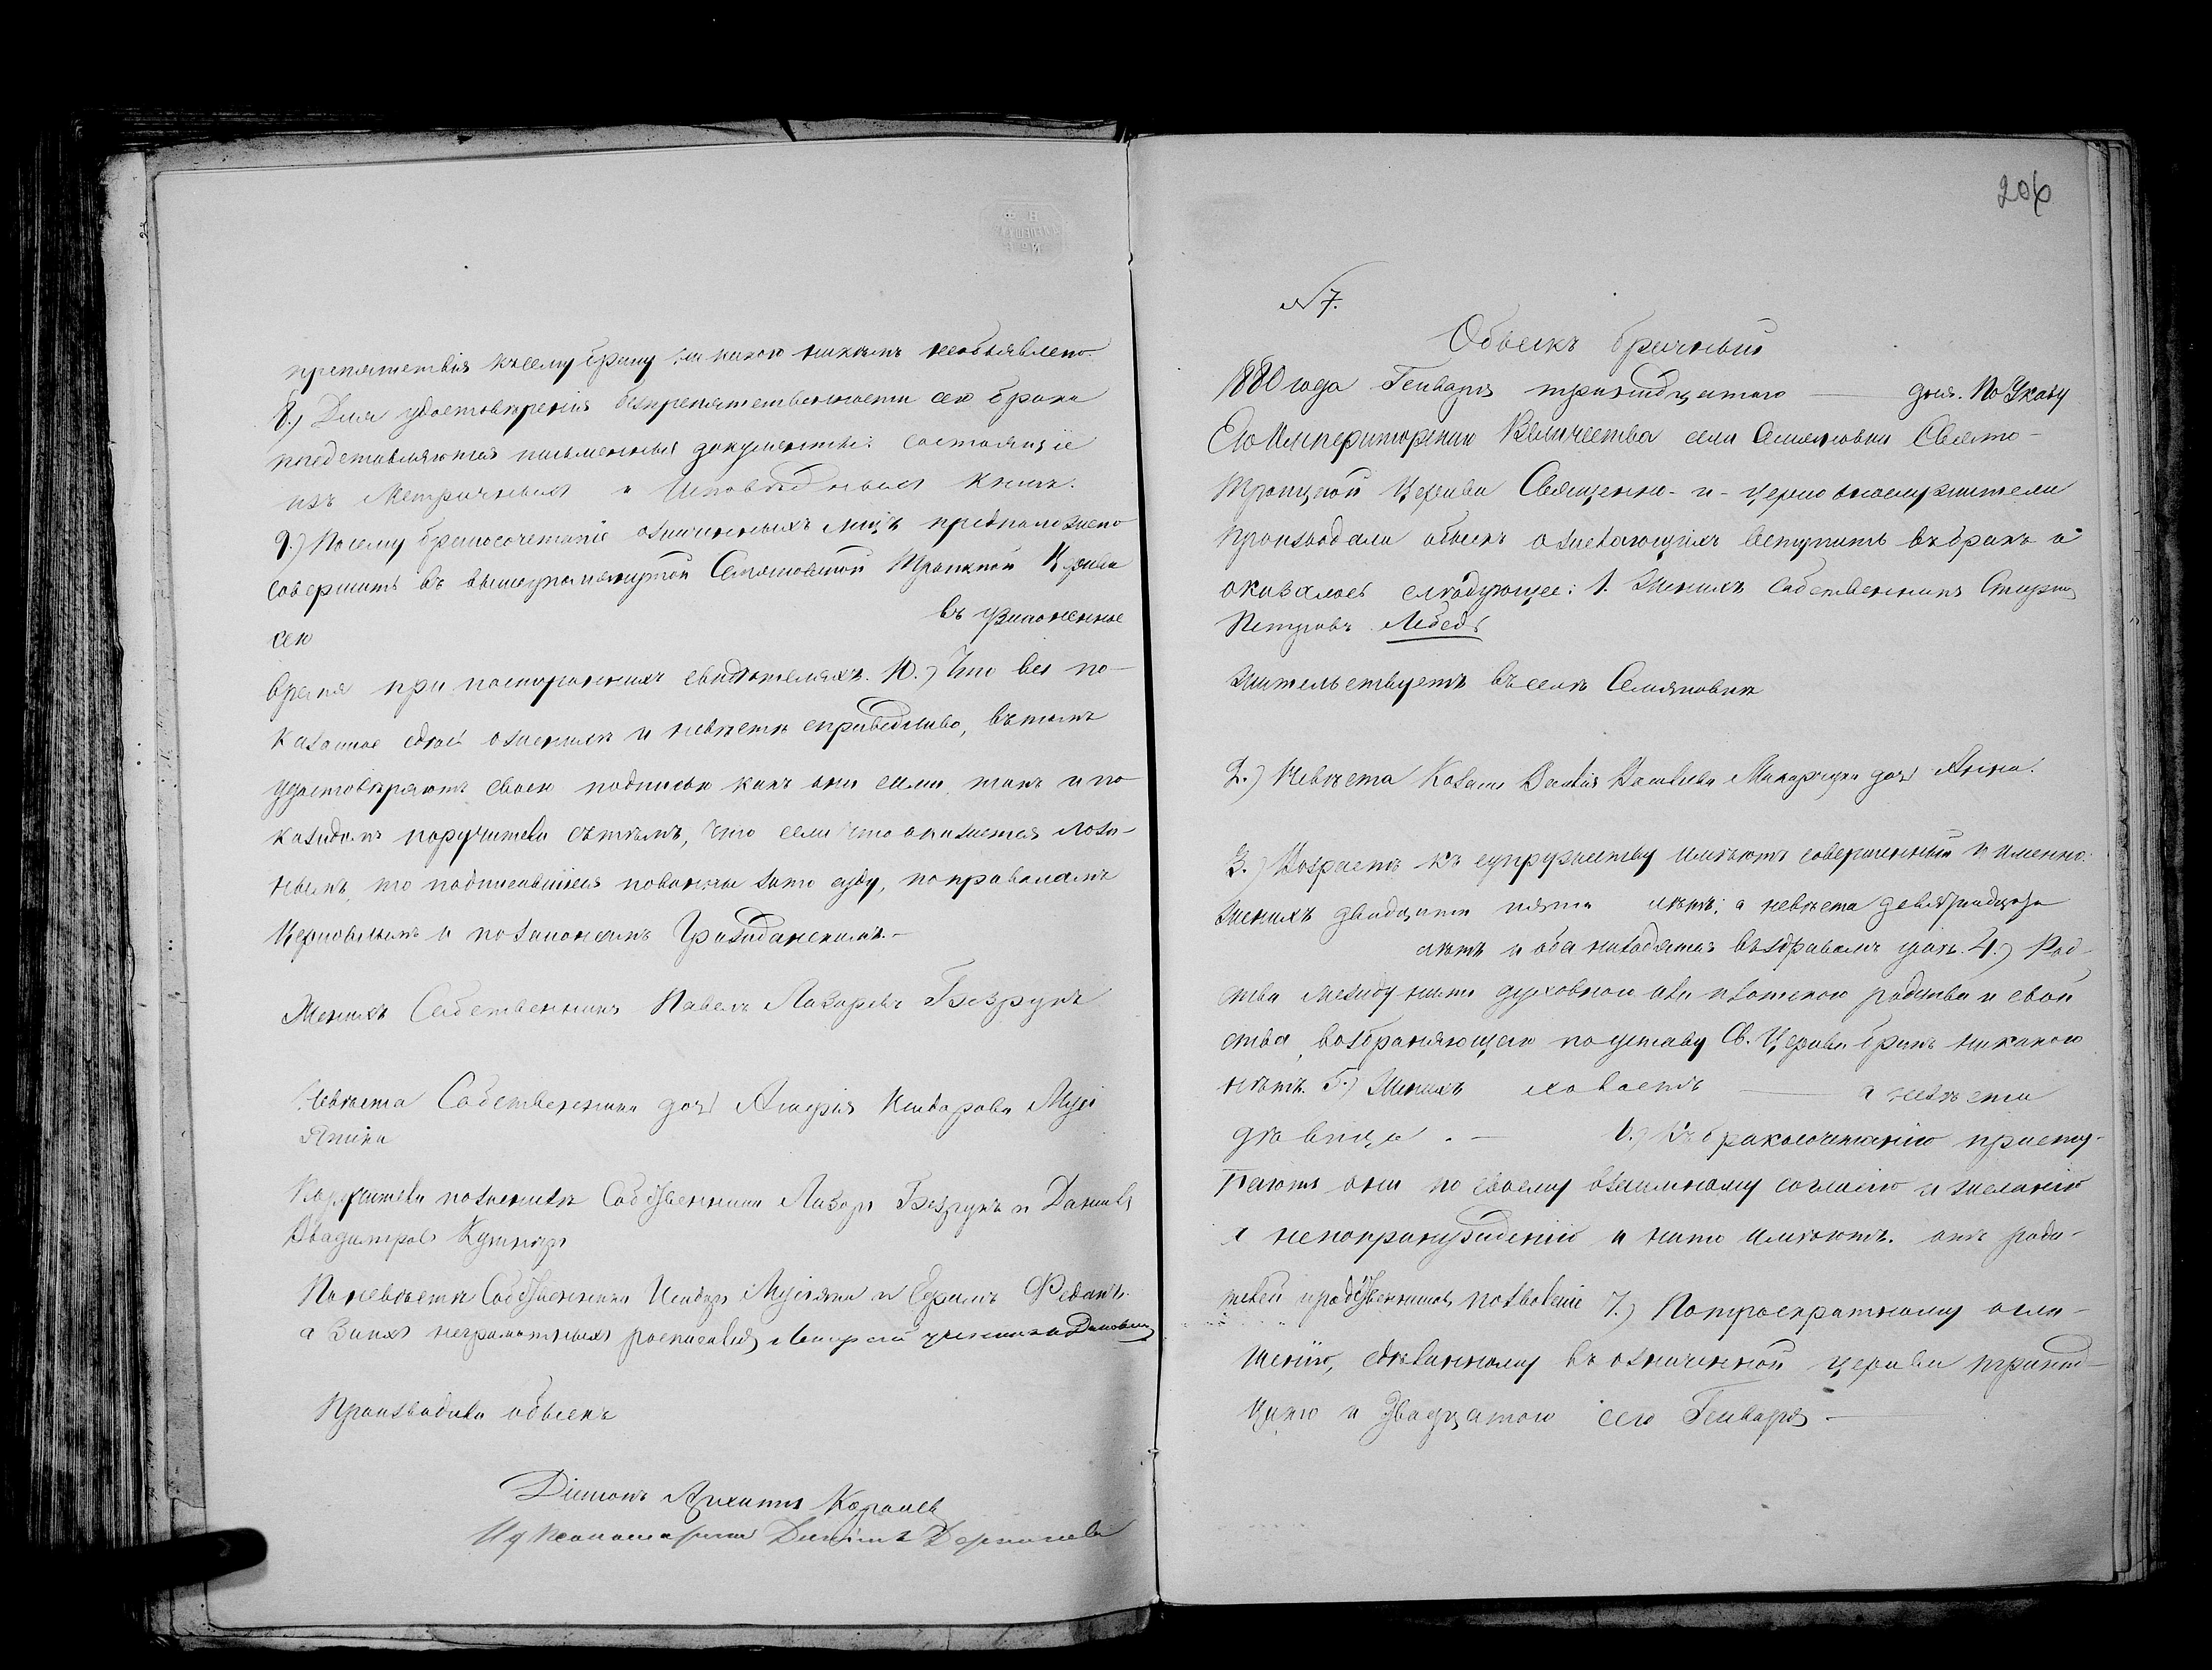 препятствія къ сему браку никакого никѣмъ необъявлено.
8.) Для удостовѣренія безпрепятственности сего брака
представляются письменные документы: состоящіе
изъ Метричныхъ и Исповѣдныхъ книгъ.
9.) Посему бракосочетаніе означенныхъ лицъ предположено
совершить въ вышеупомянутой Семяновской Троицкой Церкви
сего въ узаконенное
время при постороннихъ свидѣтеляхъ. 10.) Что все по-
казанное здѣсь о женихѣ и невѣстѣ справедливо, въ томъ
удостовѣряютъ своею подписью какъ они сами, такъ и по
каждомъ поручители съ тѣмъ, что если что окажется лож-
нымъ, то подписавшіеся повинны зато суду, по правиламъ
Церковнымъ и по законамъ Гражданскимъ.–
Женихъ Собственникъ Павелъ Лазаревъ Безрукъ
Невѣста Собственника дочь Исидорова
Поручители по женихѣ Собственники Лазарь Безрукъ и Даніилъ
По невѣстѣ Собственники Исидоръ и Ефимъ
а За ихъ неграмотныхъ росписался
Производили обыскъ
Діаконъ
И д Псаломщика
206
№ 7.
Обыскъ брачный
1880 года Генваря тринадцатаго — дня. По Указу
Его Императорскаго Величества села Семяновки Свято-
Троицкой Церкви Священно- и- церковнослужители
производили обыскъ о желающихъ вступить въ бракъ и
оказалось слѣдующее: 1. Женихъ Собственникъ
Петровъ Лебедь
жительствуетъ въ селѣ Семяновкѣ
2.) Невѣста Козака дочь Анна.
3.) Возрастъ къ супружеству имѣютъ совершенный и именно:
женихъ двадцати пяти лѣтъ; а невѣста девятнадцати
лѣтъ и оба находятся въ здравомъ умѣ. 4.) Род-
ства между ними духовнаго или плотскаго родства и свой
ства, возбраняющаго по уставу Св. Церкви бракъ никакого
нѣтъ. 5.) Женихъ холостъ — а невѣста
дѣвица. – 6.) Къ бракосочетанію присту-
паютъ они по своему взаимному согласію и желанію
а не по принужденію и нато имѣютъ. отъ роди-
телей и родственниковъ позволеніе 7.) По троекратному огла-
шенію, сдѣланному въ означенной церкви тринад-
цатаго и Двадцатого сего Генваря –